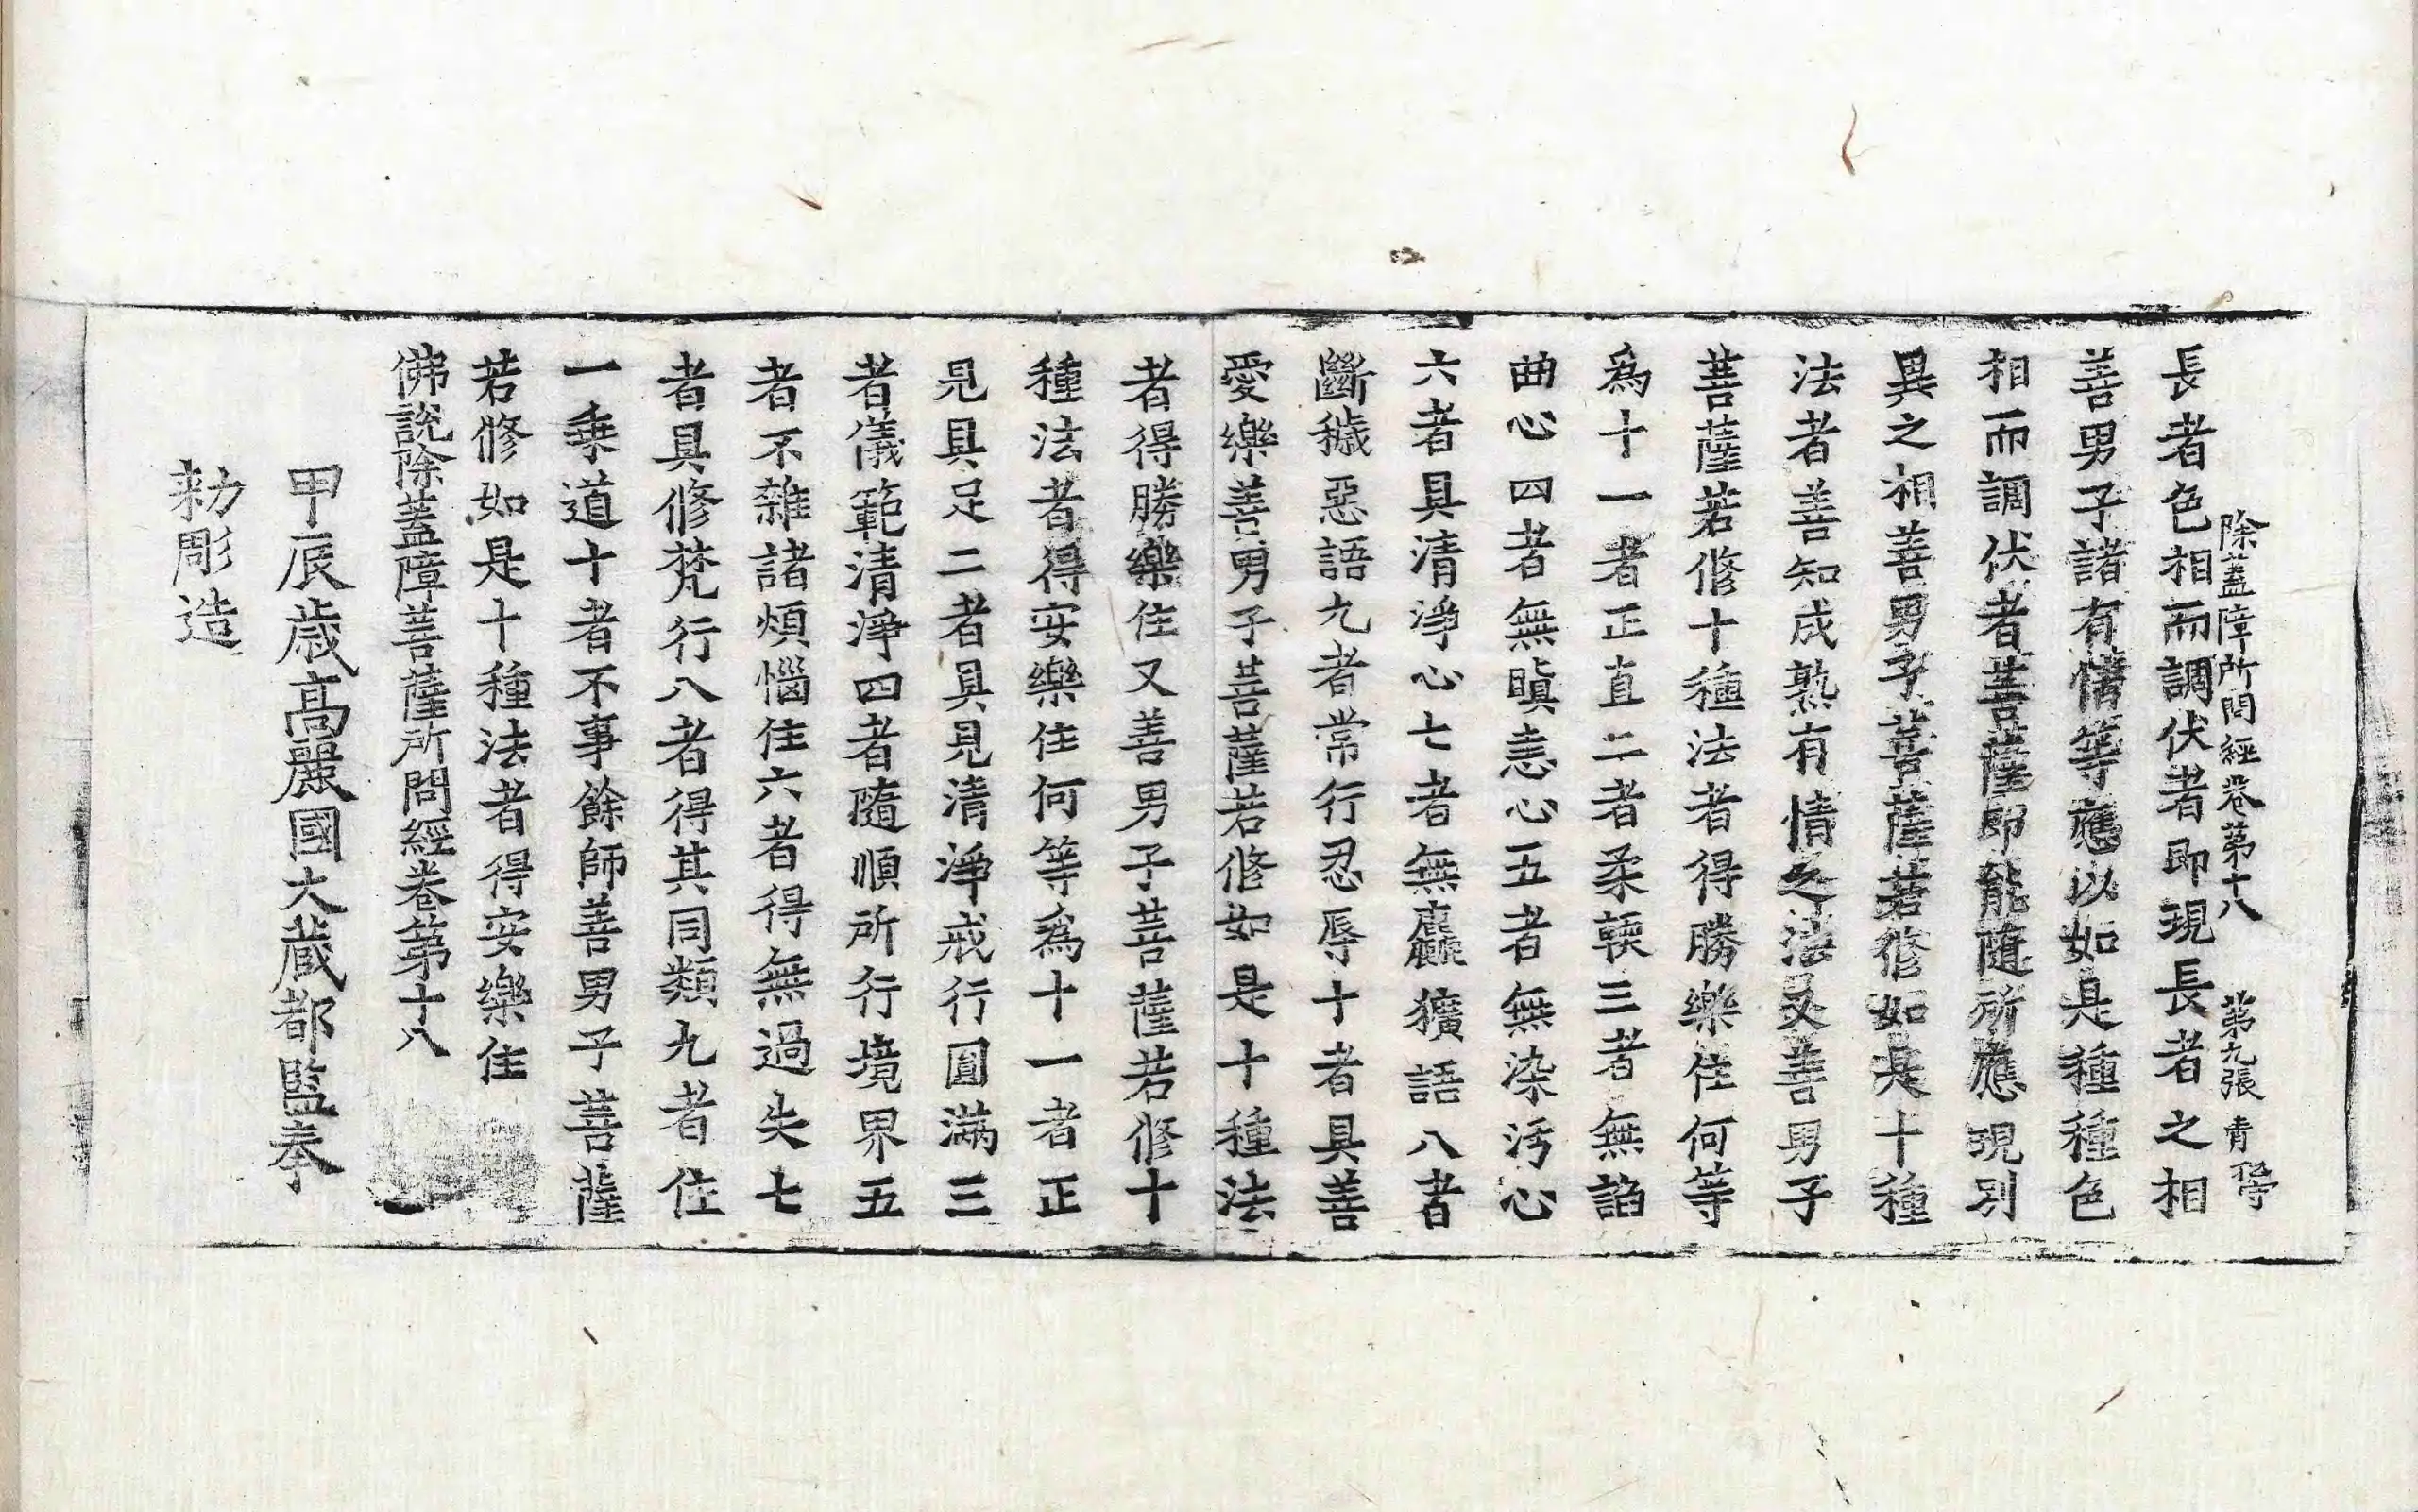 除蓋障所問經卷第十八 第九張 青
長者色相而調伏者即現長者之相
善男子諸有情等應以如是種種色
相而調伏者菩薩即能隨所應現別
異之相善男子菩薩若修如是十種
法者善知成熟有情之法又善男子
菩薩若修十種法者得勝樂住何等
為十一者正直二者柔䎡三者無諂
曲心四者無瞋恚心五者無染污心
六者具清淨心七者無麤獷語八者
斷穢惡語九者常行忍辱十者具善
愛樂善男子菩薩若修如是十種法
者得勝樂住又善男子菩薩若修十
種法者得安樂住何等為十一者正
見具足二者具見清淨戒行圓滿三
者儀範清淨四者隨順所行境界五
者不雜諸煩惱住六者得無過失七
者具修梵行八者得其同類九者住
一乗道十者不事餘師善男子菩薩
若修如是十種法者得安樂住
佛說除蓋障菩薩所問經卷第十八
甲辰歳高麗國大藏都監奉
勑彫造